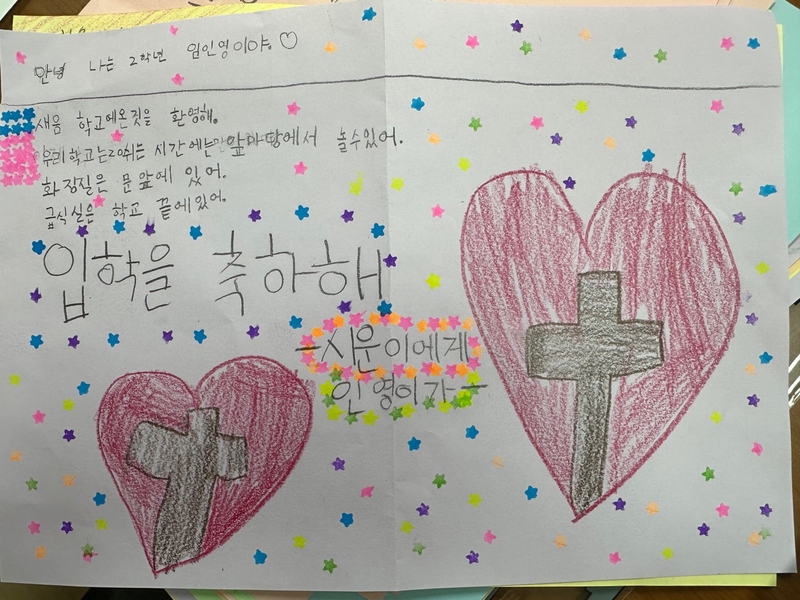 안녕 나는 2학년 임인영이야.♡
새음 학교에온것을 환영해.
우리학교는20쉬는 시간에는 앞마당에서 놀수있어.
화장실은 문앞에 있어.
급식실은 학교 끝에있어.
입학을 축하해
-시운이에게
인영이가-